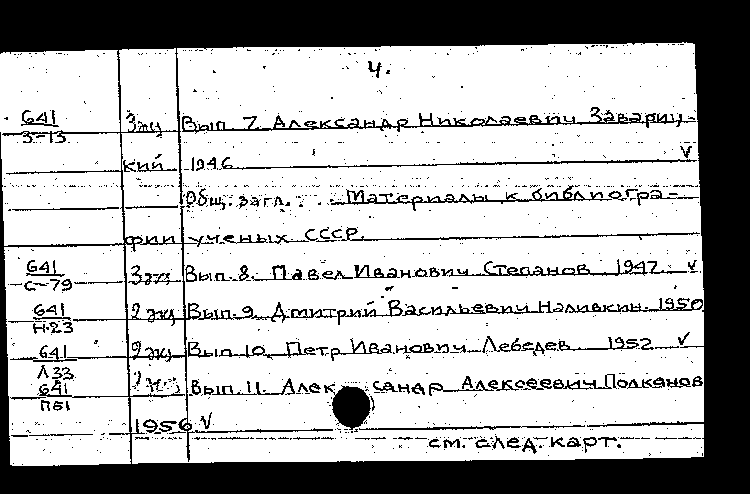 4.
641
З-13 3 экз Вып. 7. Александр Николаевич Завариц-
кий 1946 V
Общ. загл. . . . Материалы к библиогра-
фии ученых СССР.
641
С-79 3 экз Вып. 8. Павел Иванович Степанов 1947 V
641
Н-23 2 экз Вып. 9. Дмитрий Васильевич Наливкин. 1950
641
Л33 2 экз Вып. 10. Петр Иванович Лебедев 1952 V
641
П51 2 экз Вып. 11. Александр Алексеевич Полканов
1956 V
см. след. карт.